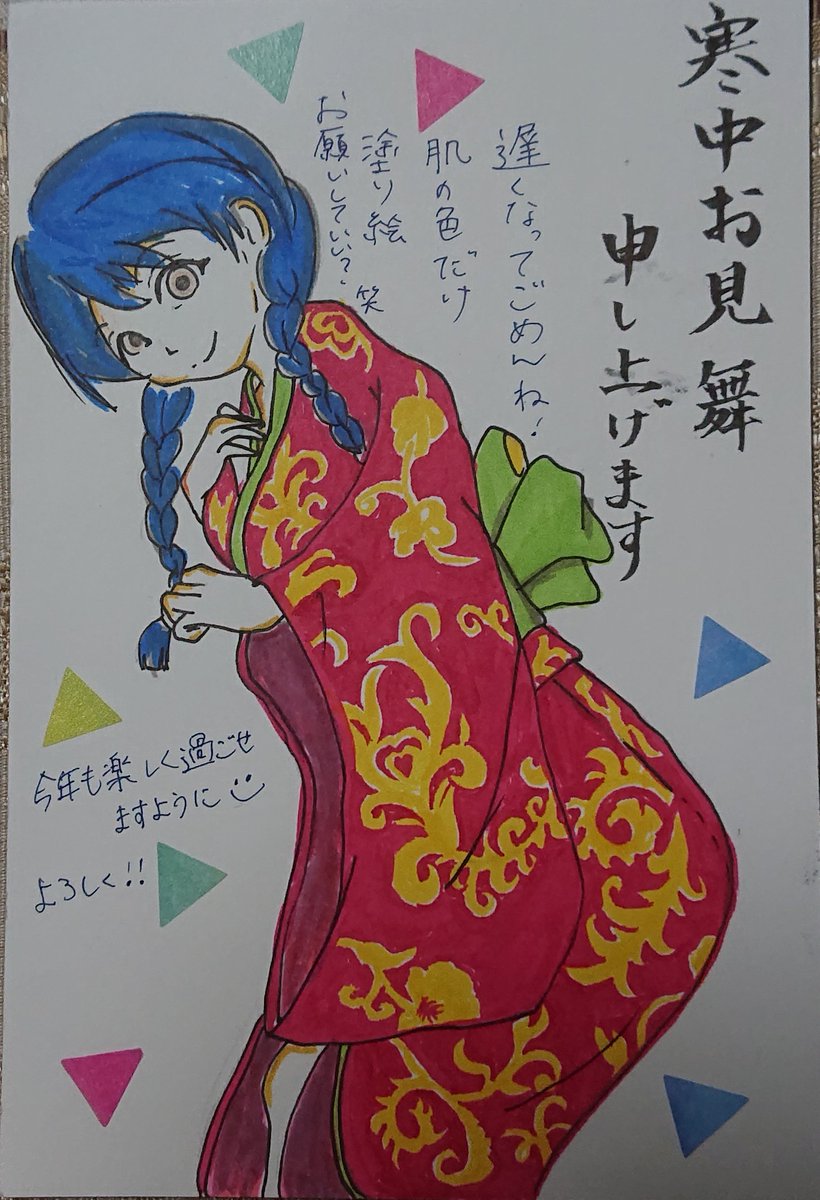 寒中お見舞
申し上げます
遅くなってごめんね!
肌の色だけ
塗り絵 笑
お願いしていい?
今年も楽しく過ごせ
ますように
よろしく!!